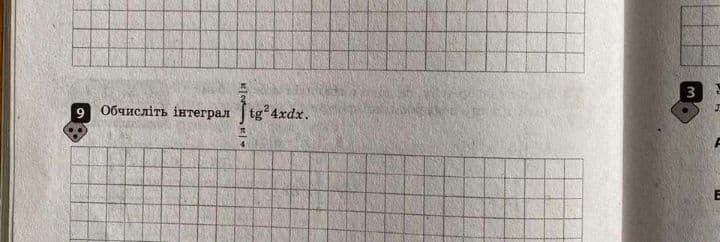 9 Обчисліть інтеграл $\int_{\frac{π}{4}}^{\frac{π}{2}} tg^2 4xdx$.
3